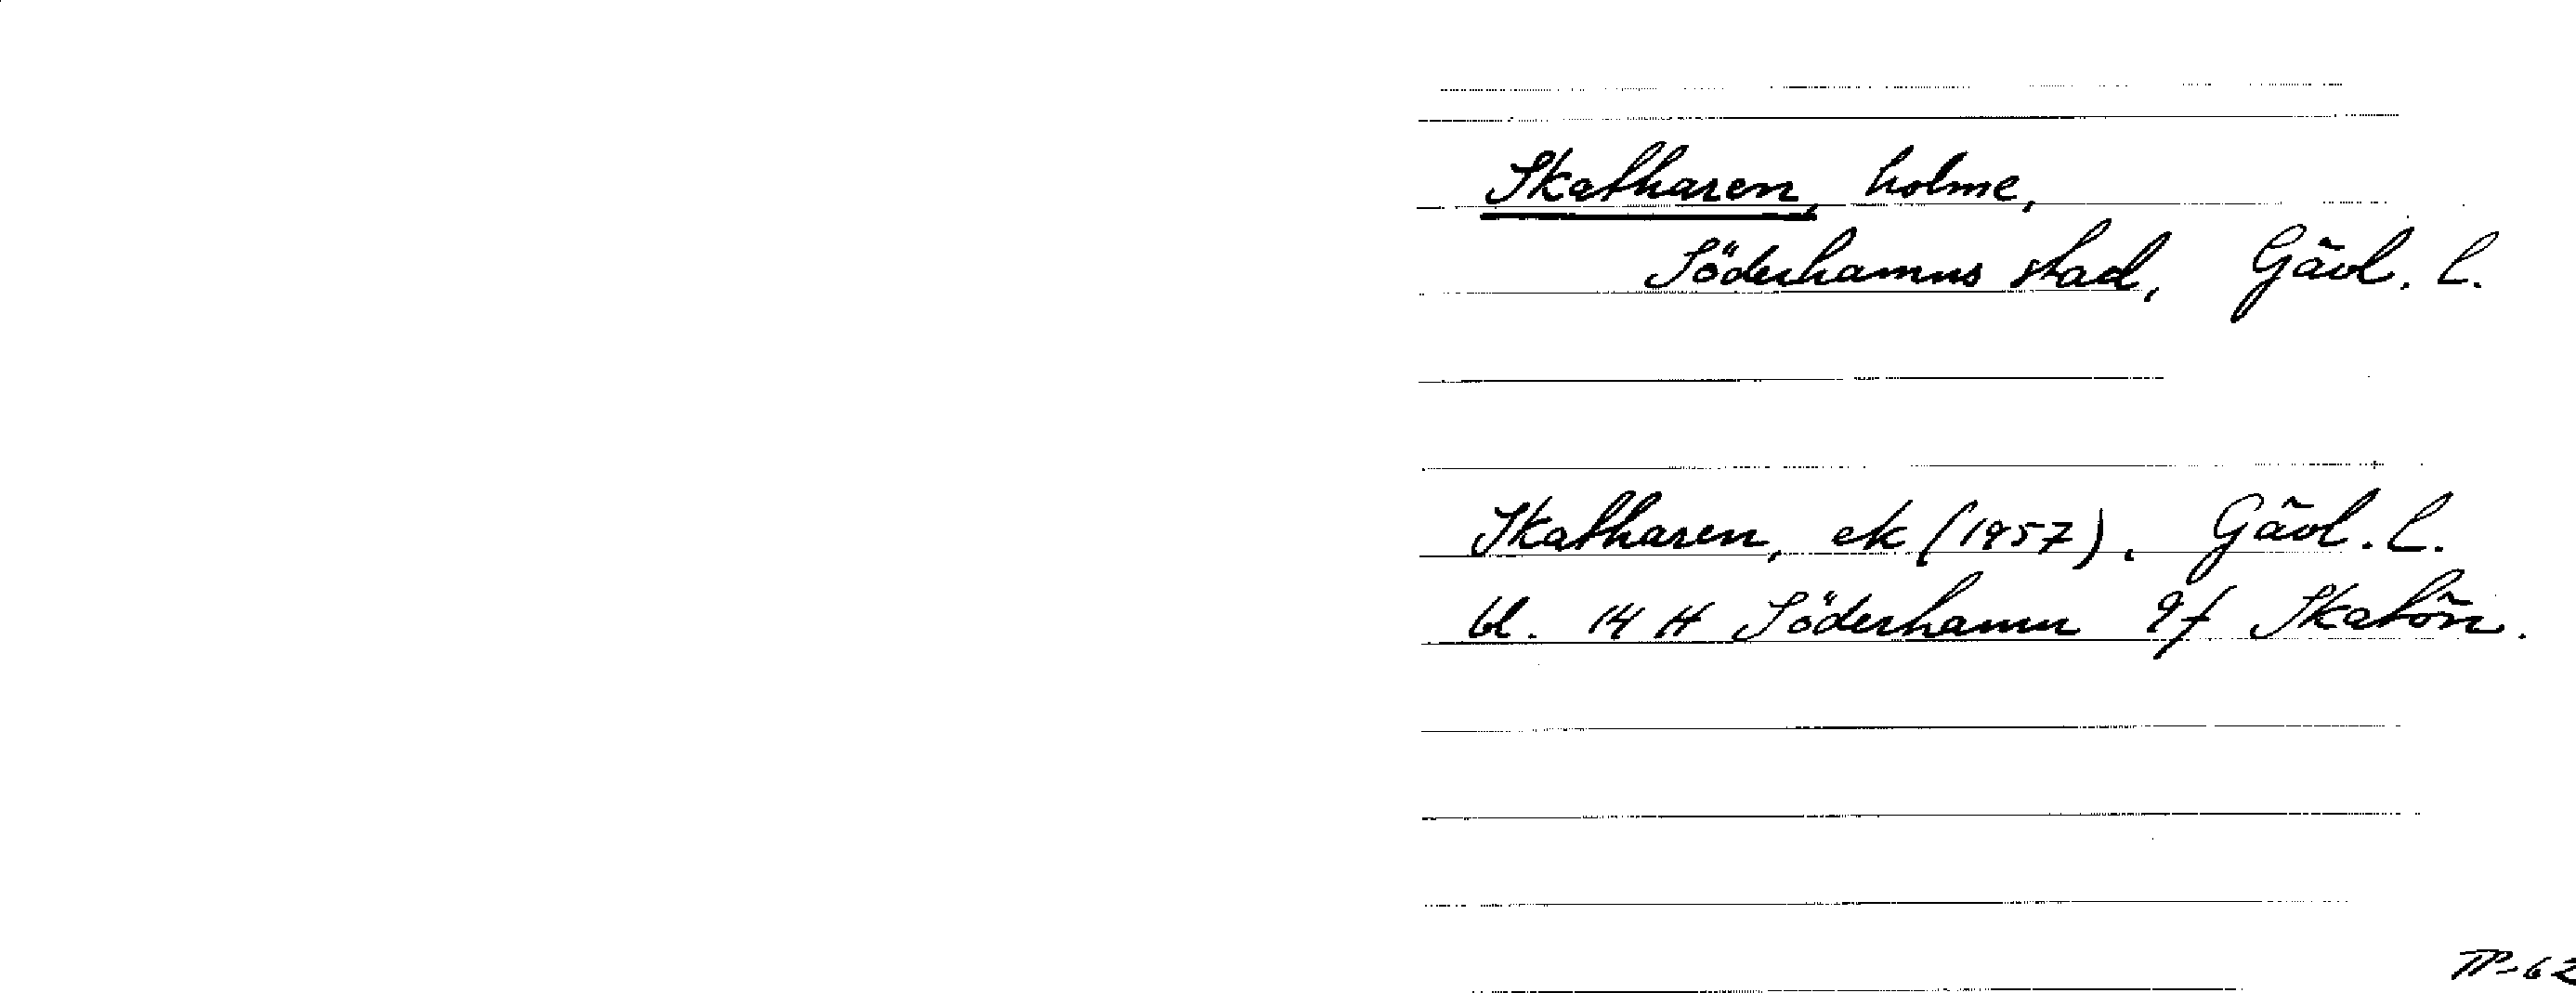 Skatharen, holme,
Söderhamns stad, Gävl. l.
Skatharen, ek (1957). Gävl. l.
bl. 14 H Söderhamn 9f Skatön.
TP-62